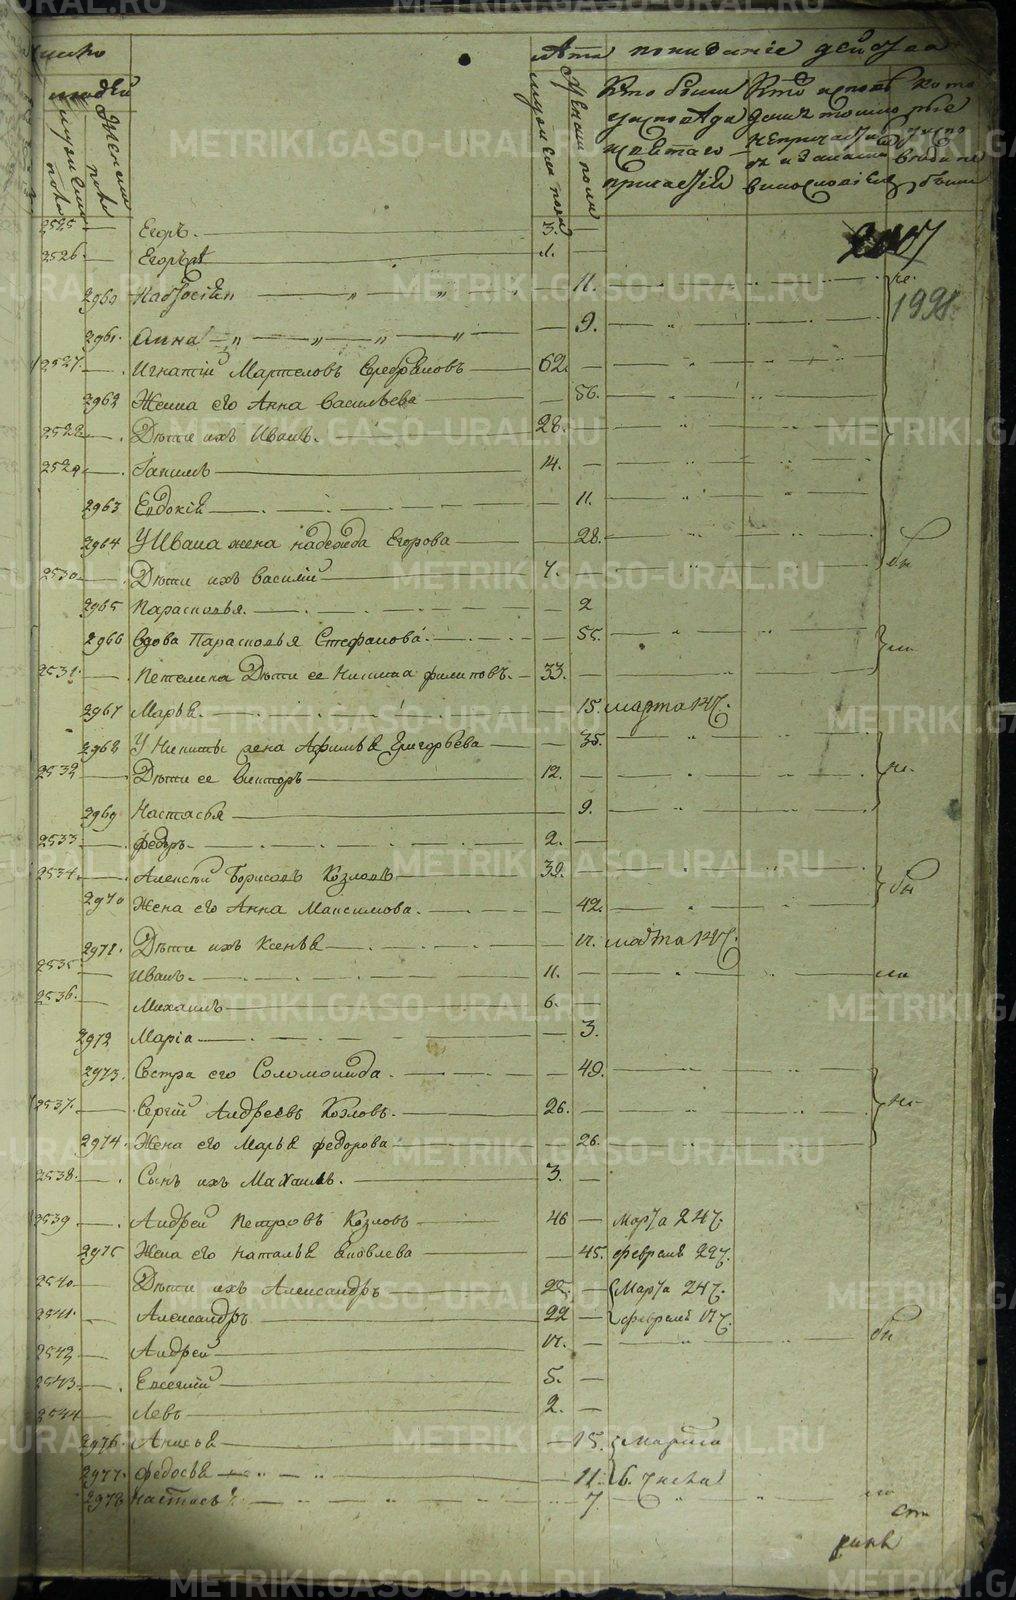 Число Лета показание действа
людей
мужеска пола женска пола мужеска пола женска пола Кто были у исповеди и святаго причастия Кто исповедались токмо а не причастились и за какими винословии которые у исповеди не были
2525 — Егоръ 3. —
2526 — Егоръ 1. —
2007
2960 Настосiя — 11. не.
1998.
2961 Анна — 9.
2527 — Игнатiй Мартемовъ Серебряковъ 62. —
2962 Жена его Анна Васильева — 56.
2528 — Дѣти ихъ Иванъ. 28. —
2529 — Iакимъ 14. —
2963 Евдокiя — 11.
2964 У Ивана жена надежда Егорова — 28. бы
2530 — Дѣти ихъ Василiй 7. —
2965 Парасковья. — 2
2966 Вдова Парасковья Стефанова. — 55.
2531 — Петелина Дѣти ее Никита филиповъ. 33. —
2967 Марья. — 15. марта 14 ч.
2968 У Никиты жена Афимья Григорьева — 35.
2532 — Дѣти ее Викторъ 12. — не.
2969 Настасья — 9.
2533 — федоръ 2. —
2534. — Алексѣй Борисовъ Козловъ 39. — бы
2970 Жена его Анна Максимова. — 42.
2971. Дѣти ихъ Ксенья — 17. марта 14 ч.
2535 — Иванъ. 11. — ли
2536. — Михаилъ 6. —
2972 Марiа — 3.
2973. Сестра его Соломонида. — 49.
2537. — Сергiй Андреевъ Козловъ. 26. — не.
2974. Жена его Марья федорова — 26.
2538. — Сынъ ихъ Михаилъ. 3. —
2539 — Андрей Петровъ Козловъ 46 — Марта 24 ч.
2975 Жена его наталья яковлева — 45. февраля 29 ч.
2540. — Дѣти ихъ Александръ 25. — Марта 24 ч.
2541. — Александръ 22 — февраля 17 ч.
2542 — Андрей 17. — бы
2543. — Евсегнiй 5. —
2544 — Левъ 2. —
2976. Анисья — 15. Марта
2977. федосья — 11. 6. числа
2978 настасья — 7 ли